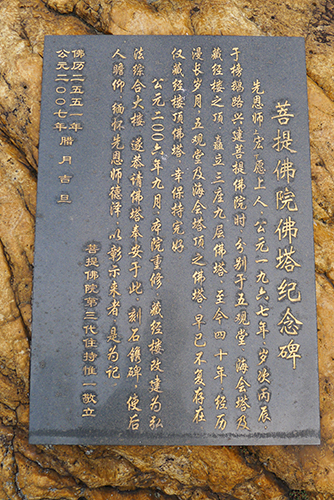 菩提佛院佛塔纪念碑
先恩师,宏,愿上人,公元一九六七年,岁次丙辰,
于榜鹅路兴建菩提佛院时,分别于五观堂,海会塔及
藏经楼之顶,矗立三座九层佛塔,至今四十年,经历
漫长岁月,五观堂及海会塔顶之佛塔,早已不复存在
仅藏经楼顶佛塔,幸保持完好
公元二00六年九月,本院重修,藏经楼改建为弘
法综合大楼,遂恭请佛塔奉安于此,刻石镌碑,使后
人瞻仰,缅怀先恩师德泽,以彰示来者,是为记
菩提佛院第三代住持惟一敬立
佛历二五五一年
公元二00七年腊月吉旦